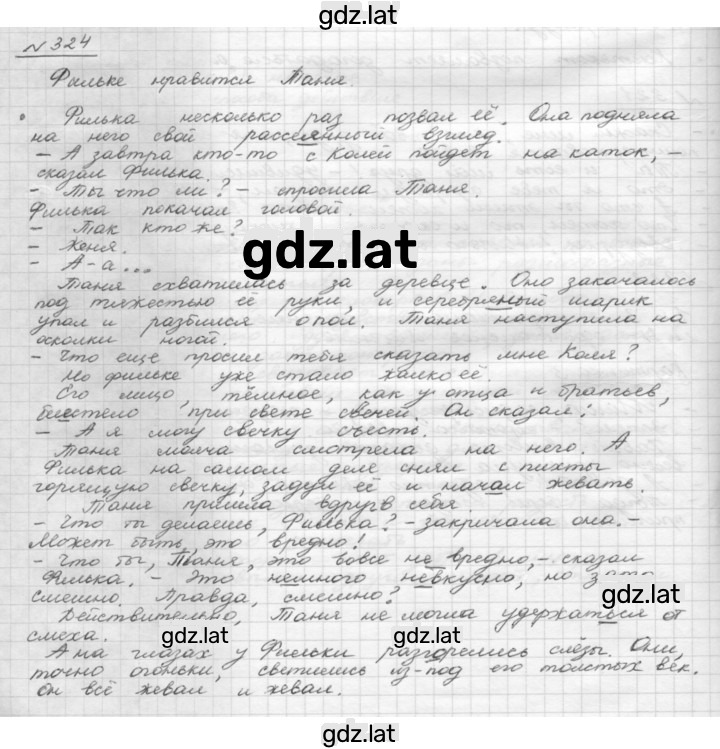 gdz.lat
№ 324
Фильке нравится Таня.
Филька несколько раз позвал её. Она подняла
на него свой рассеянный взгляд.
– А завтра кто-то с Колей пойдет на каток, –
сказал Филька.
– Ты что ли? – спросила Таня.
Филька покачал головой.
– Так кто же?
– Женя.
gdz.lat
– А-а...
Таня схватилась за деревце. Оно закачалось
под тяжестью её руки, и серебряный шарик
упал и разбился о пол. Таня наступила на
осколки ногой.
– Что еще просил тебя сказать мне Коля?
Но Фильке уже стало жалко её.
Его лицо, тёмное, как у отца и братьев,
блестело при свете свечей. Он сказал:
– А я могу свечку съесть.
Таня молча смотрела на него. А
Филька на самом деле снял с пихты
горящую свечку, задул её и начал жевать.
Таня пришла вдруг в себя.
– Что ты делаешь, Филька? – закричала она. –
Может быть, это вредно!
– Что ты, Таня, это вовсе не вредно, – сказал
Филька. – Это немного невкусно, но зато
смешно. Правда, смешно?
gdz.lat
Действительно, Таня не могла удержаться от
смеха.
gdz.lat
gdz.lat
А на глазах у Фильки разгорелись слёзы. Они,
точно огоньки, светились из-под его толстых век.
Он всё жевал и жевал.
gdz.lat